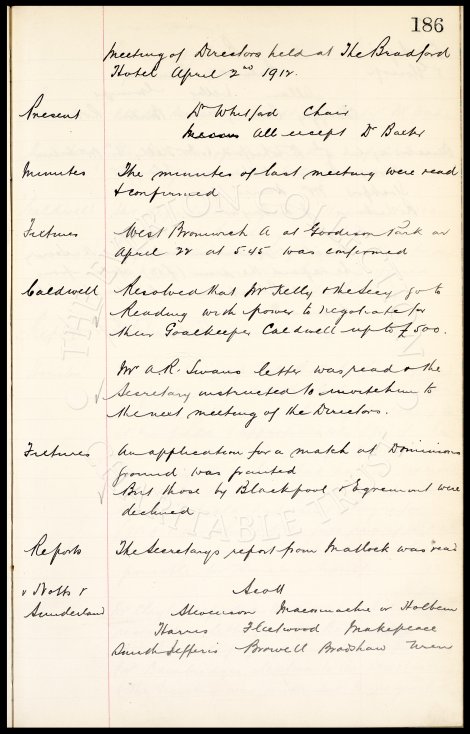 186
Meeting of Directors held at The Bradford
Hotel April 2nd 1912.
Present Dr Whitford Chair
All except Dr Baxter
Minutes The minutes of last meeting were read
& confirmed
Fixtures West Bromwich A at Goodison Park on
April 22 at 5.45 was confirmed
Caldwell Resolved that Mr Kelly & the Secy go to
Reading with power to negotiate for
their Goalkeeper Caldwell up to £500.
Mr A.R. letter was read & the
Secretary instructed to invite him to
the next meeting of the Directors.
Fixtures An application for a match at Dominions
ground was granted
But those by Blackpool & Egremont were
declined
Reports The Secretary's report from Matlock was read
v Notts v
Sunderland
Scott
Stevenson Maconnachie or Holbem
Harris Fleetwood Makepeace
Jefferis Browell Bradshaw Uren
THE EVERTON COLLECTION CHARITABLE TRUST